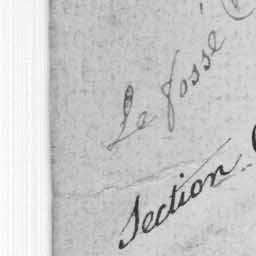 Le fossé
Section